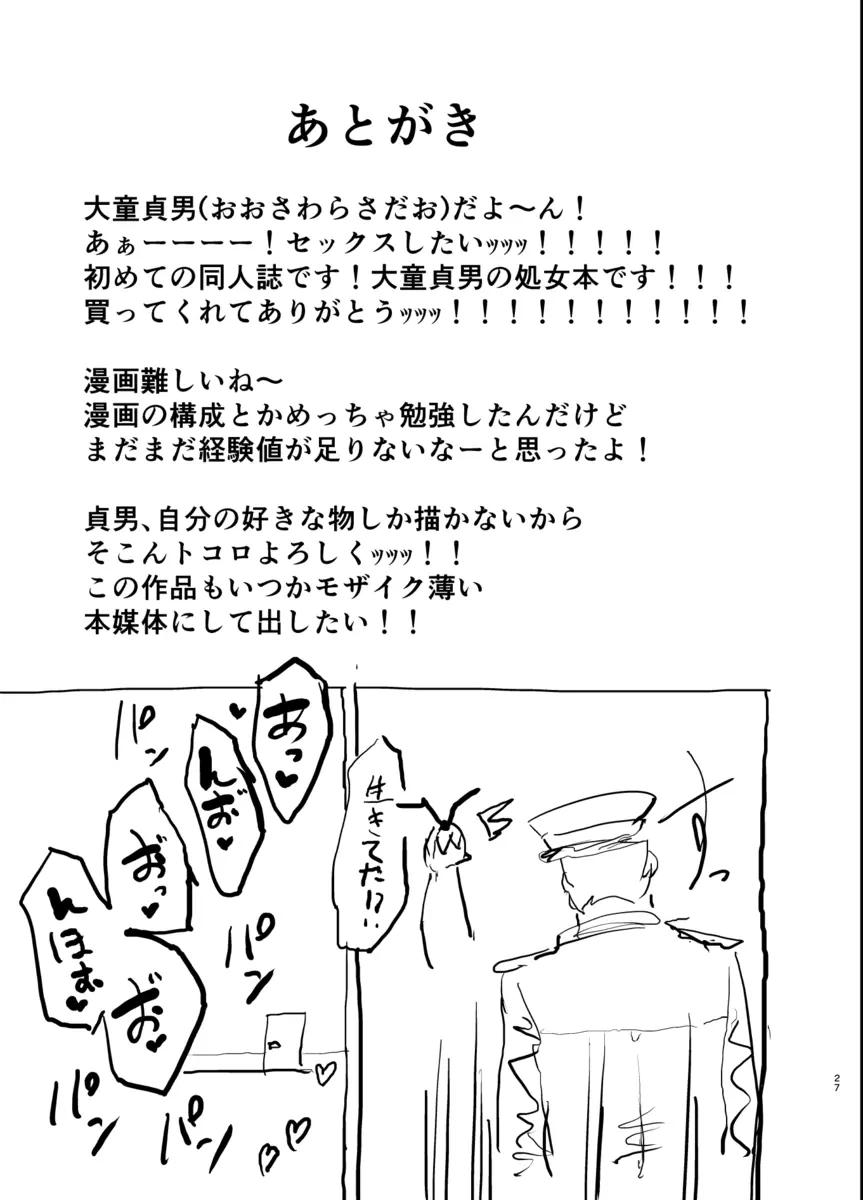 あとがき
大童貞男(おおさわらさだお)だよ～ん！
あぁーーーー！セックスしたいｯｯｯ！！！！！
初めての同人誌です！大童貞男の処女本です！！！
買ってくれてありがとうｯｯｯ！！！！！！！！！！！
漫画難しいね～
漫画の構成とかめっちゃ勉強したんだけど
まだまだ経験値が足りないなーと思ったよ！
貞男、自分の好きな物しか描かないから
そこんトコロよろしくｯｯｯ！！
この作品もいつかモザイク薄い
本媒体にして出したい！！
スッ
生きてた!?
あっ♥
んお♥
おっ♥
お♥
んほお♥
パン
パン
パン
パン
27